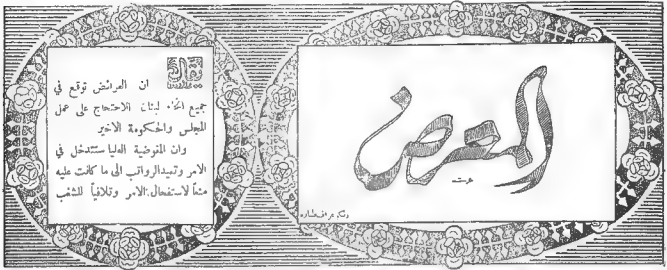 المعرض
يقال
ان العرائض توقع في
جميع انحاء لبنان للاحتجاج على عمل
المجلس والحكومة الاخير
وان المفوضية العليا ستتدخل في
الامر وتعيد الرواتب الى ما كانت عليه
منعاً لاستفحال الامر وتلافياً للشغب